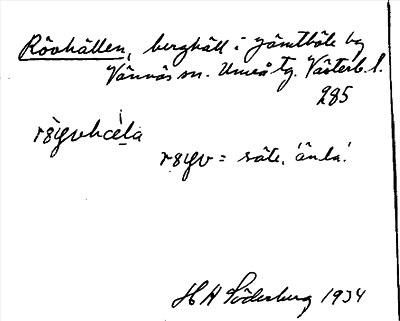 Rövhällen, berghäll i Jämtböle by
Vännäs sn. Umeå tg. Västerb. l.
285
rsyvhcela
rsyv = säte, 'ända'
H A Söderberg 1934